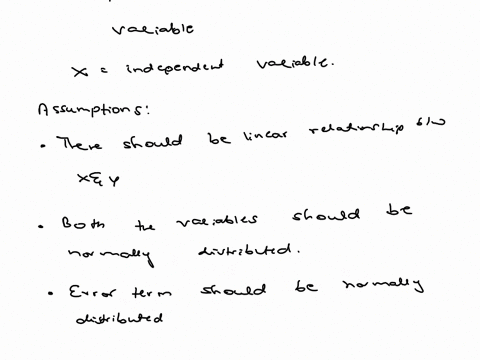 variable
x = independent variable.
Assumptions:
• There should be linear relationship b/w
x & y
• Both the variables should be
normally distributed.
• Error term should be normally
distributed